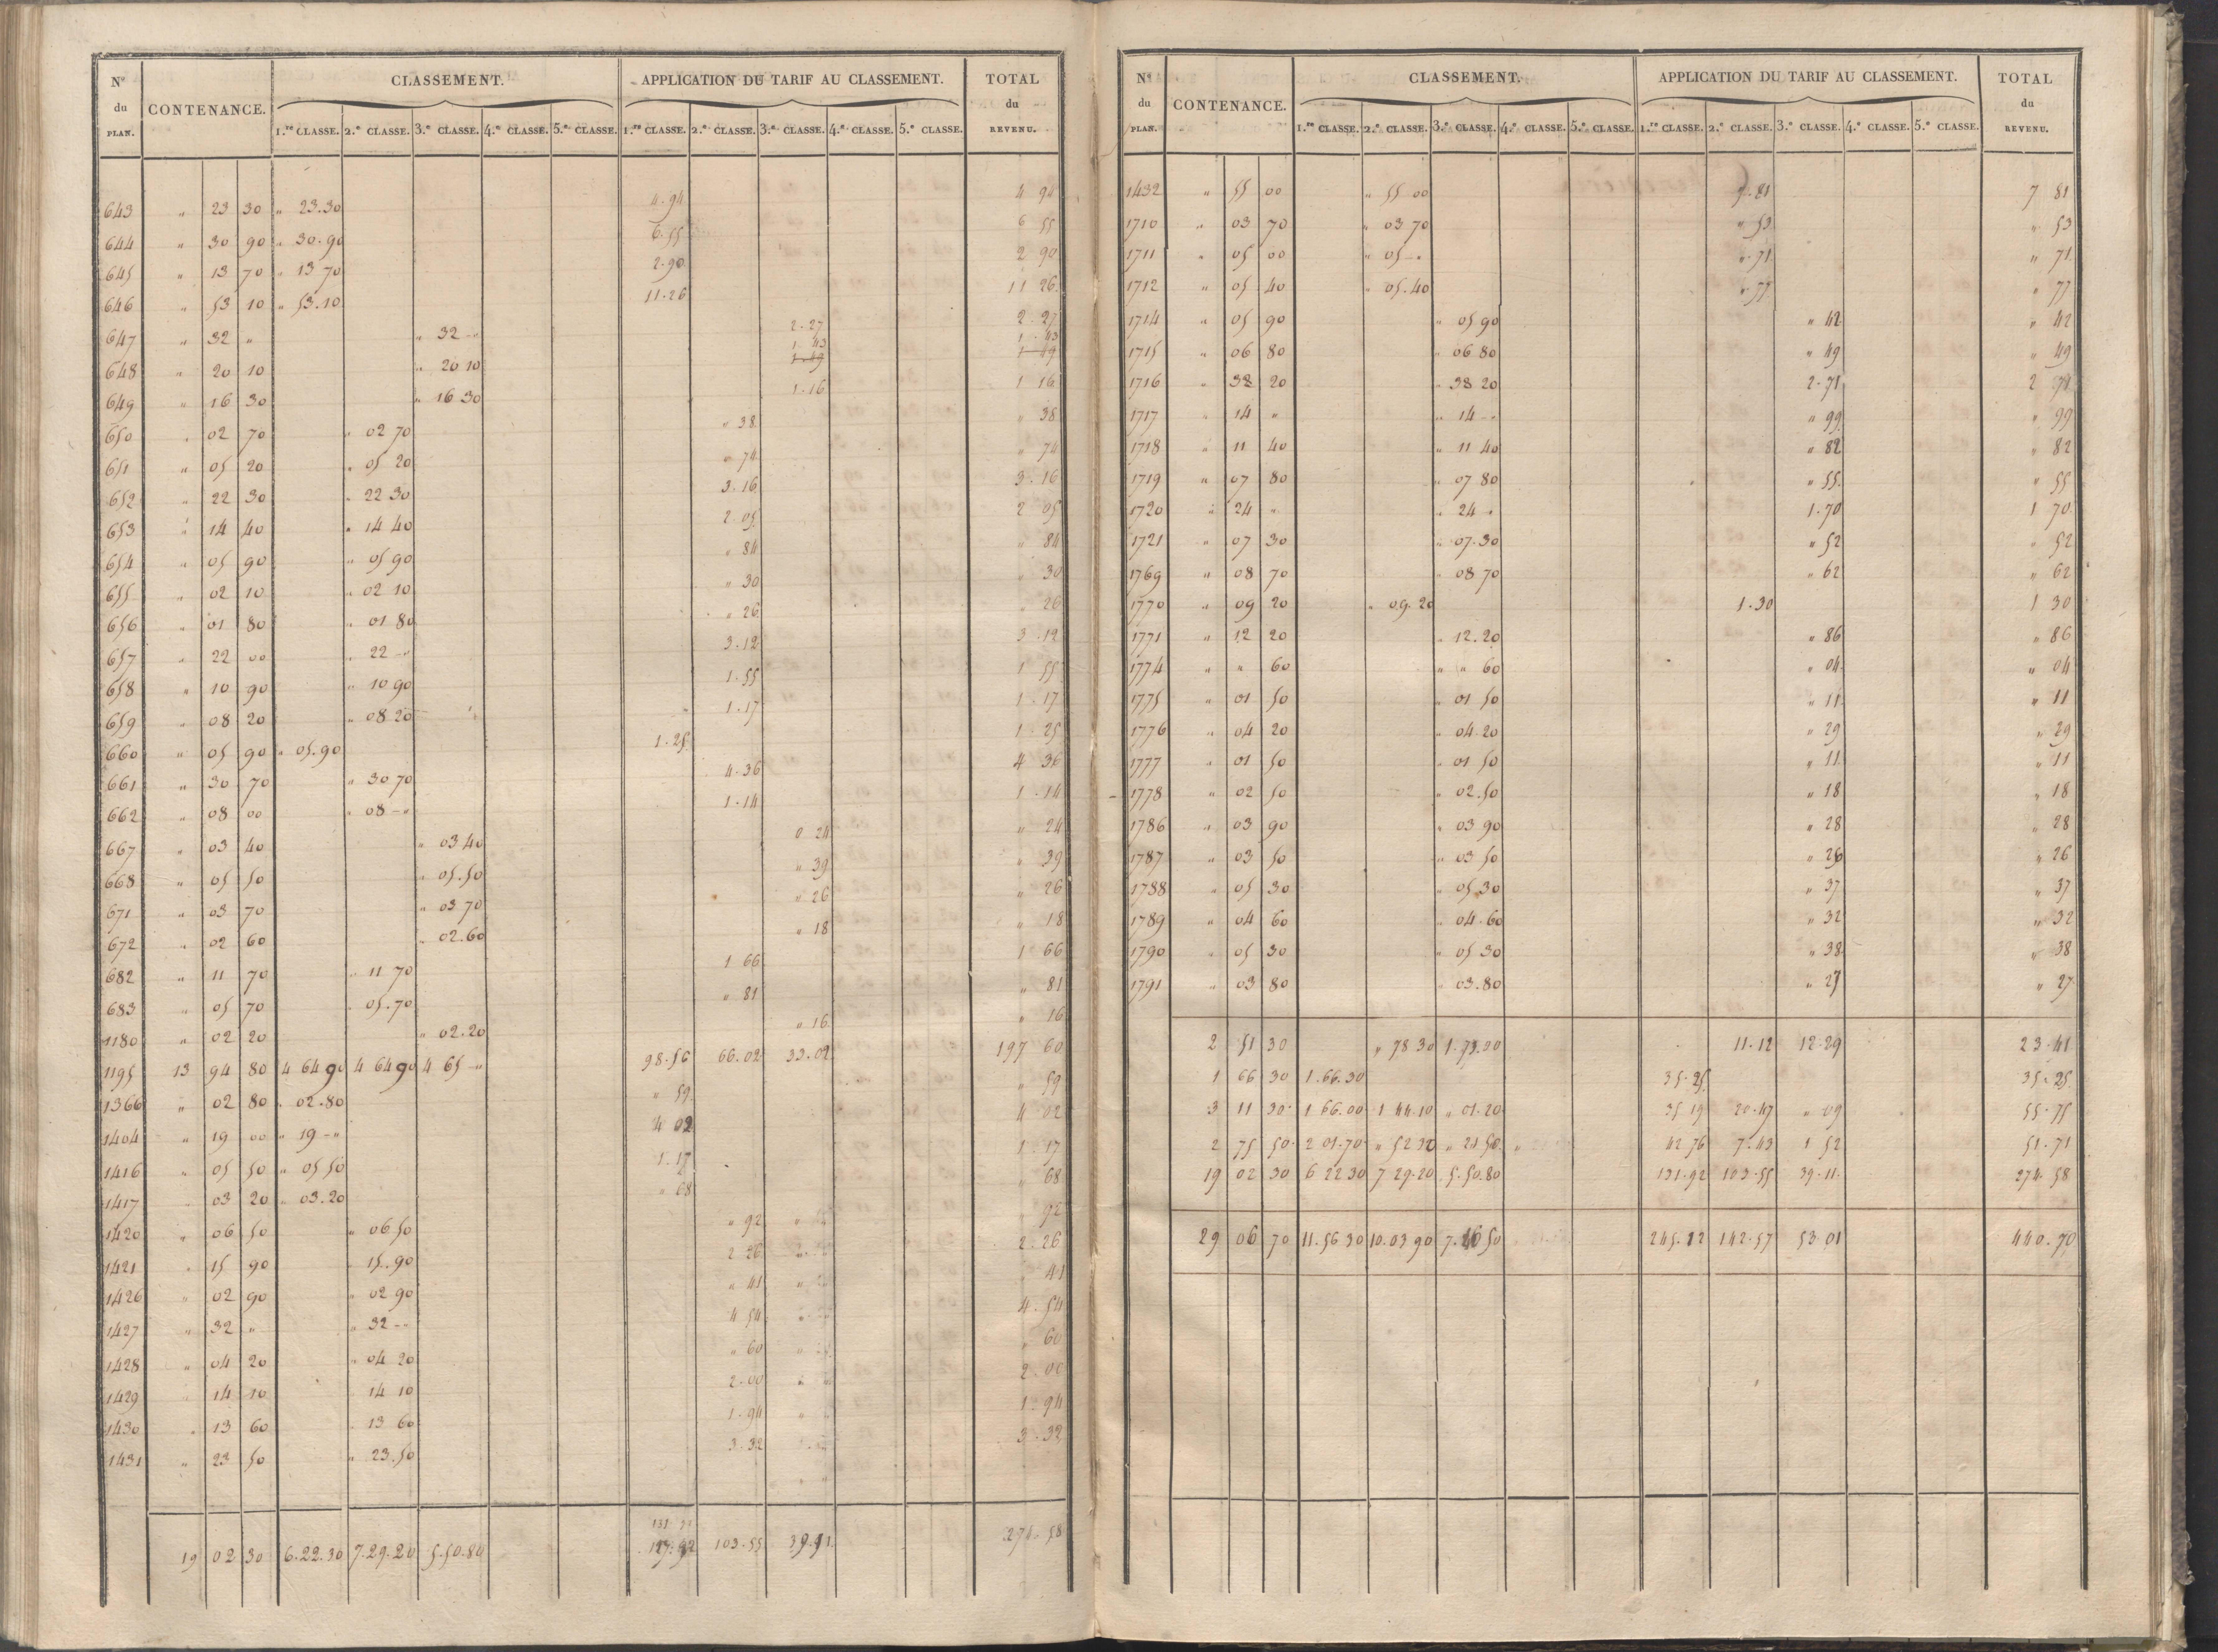 N.os du PLAN. CONTENANCE. CLASSEMENT. APPLICATION DU TARIF AU CLASSEMENT. TOTAL du REVENU.
1.re CLASSE. 2.e CLASSE. 3.e CLASSE. 4.e CLASSE. 5.e CLASSE. 1.re CLASSE. 2.e CLASSE. 3.e CLASSE. 4.e CLASSE. 5.e CLASSE.
643 " 23 30 " 23.30 4.94 4 94
644 " 30 90 " 30.90 6.55 6 55
645 " 13 70 " 13 70 2.90 2 90
646 " 53 10 " 53.10 11.26 11 26
647 " 32 " " 32 - " 2.27 2.27
648 " 20 10 " 20 10 1.43 1.49 1.43 1.49
649 " 16 30 " 16 30 1.16 1 16
650 " 02 70 " 02 70 " 38 " 38
651 " 05 20 " 05 20 " 74 " 74
652 " 22 30 " 22 30 3.16 3.16
653 " 14 40 " 14 40 2.05 2 05
654 " 05 90 " 05 90 " 84 " 84
655 " 02 10 " 02 10 " 30 " 30
656 " 01 80 " 01 80 " 26 " 26
657 " 22 00 " 22 - " 3.12 3.12
658 " 10 90 " 10 90 1.55 1 55
659 " 08 20 " 08 20 1.17 1.17
660 " 05 90 " 05.90 1.25 1.25
661 " 30 70 " 30 70 4.36 4 36
662 " 08 00 " 08 - " 1.14 1.14
667 " 03 40 " 03 40 " 24 " 24
668 " 05 50 " 05.50 " 39 " 39
671 " 03 70 " 03 70 " 26 " 26
672 " 02 60 " 02.60 " 18 " 18
682 " 11 70 " 11 70 1 66 1 66
683 " 05 70 " 05.70 " 81 " 81
1180 " 02 20 " 02.20 " 16 " 16
1195 13 94 80 4 64 90 4 64 90 4 65 - " 98.56 66.02 33.02 197 60
1366 " 02 80 " 02.80 " 59 " 59
1404 " 19 00 " 19 - " 4 02 4 02
1416 " 05 50 " 05 50 1.17 1.17
1417 " 03 20 " 03.20 " 68 " 68
1420 " 06 50 " 06 50 " 92 " 92
1421 " 15 90 " 15.90 2 26 2.26
1426 " 02 90 " 02 90 " 41 " 41
1427 " 32 " " 32 - " 4 54 4.54
1428 " 04 20 " 04 20 " 60 " 60
1429 " 14 10 " 14 10 2.00 2.00
1430 " 13 60 " 13 60 1.94 1.94
1431 " 23 50 " 23.50 3.32 3.32
19 02 30 6.22.30 7.29.20 5.50.80 131 92 103.55 39.11 274.58
N.os du PLAN. CONTENANCE. CLASSEMENT. APPLICATION DU TARIF AU CLASSEMENT. TOTAL du REVENU.
1.re CLASSE. 2.e CLASSE. 3.e CLASSE. 4.e CLASSE. 5.e CLASSE. 1.re CLASSE. 2.e CLASSE. 3.e CLASSE. 4.e CLASSE. 5.e CLASSE.
1432 " 55 00 " 55 00 7.81 7 81
1710 " 03 70 " 03 70 " 53 " 53
1711 " 05 00 " 05 - " " 71 " 71
1712 " 05 40 " 05.40 " 77 " 77
1714 " 05 90 " 05 90 " 42 " 42
1715 " 06 80 " 06 80 " 49 " 49
1716 " 38 20 " 38 20 2.71 2 71
1717 " 14 " " 14 - " " 99 " 99
1718 " 11 40 " 11 40 " 82 " 82
1719 " 07 80 " 07 80 " 55 " 55
1720 " 24 " " 24 " 1.70 1 70
1721 " 07 30 " 07.30 " 52 " 52
1769 " 08 70 " 08 70 " 62 " 62
1770 " 09 20 " 09.20 1.30 1 30
1771 " 12 20 " 12.20 " 86 " 86
1774 " " 60 " " 60 " 04 " 04
1775 " 01 50 " 01 50 " 11 " 11
1776 " 04 20 " 04.20 " 29 " 29
1777 " 01 50 " 01 50 " 11 " 11
1778 " 02 50 " 02.50 " 18 " 18
1786 " 03 90 " 03 90 " 28 " 28
1787 " 03 50 " 03 50 " 26 " 26
1788 " 05 30 " 05.30 " 37 " 37
1789 " 04 60 " 04.60 " 32 " 32
1790 " 05 30 " 05 30 " 38 " 38
1791 " 03 80 " 03.80 " 27 " 27
2 51 30 " 78 30 1.73.00 11.12 12.29 23.41
1 66 30 1.66.30 35.25 35.25
3 11 30 1 66.00 1 44.10 " 01.20 35 19 20.47 " 09 55.75
2 75 50 2 01.70 " 52 30 " 21 50 42 76 7.43 1 52 51.71
19 02 30 6 22 30 7 29.20 5.50.80 131.92 103.55 39.11 274.58
29 06 70 11.56 30 10.03 90 7.46 50 245.12 142.57 53 01 440.70